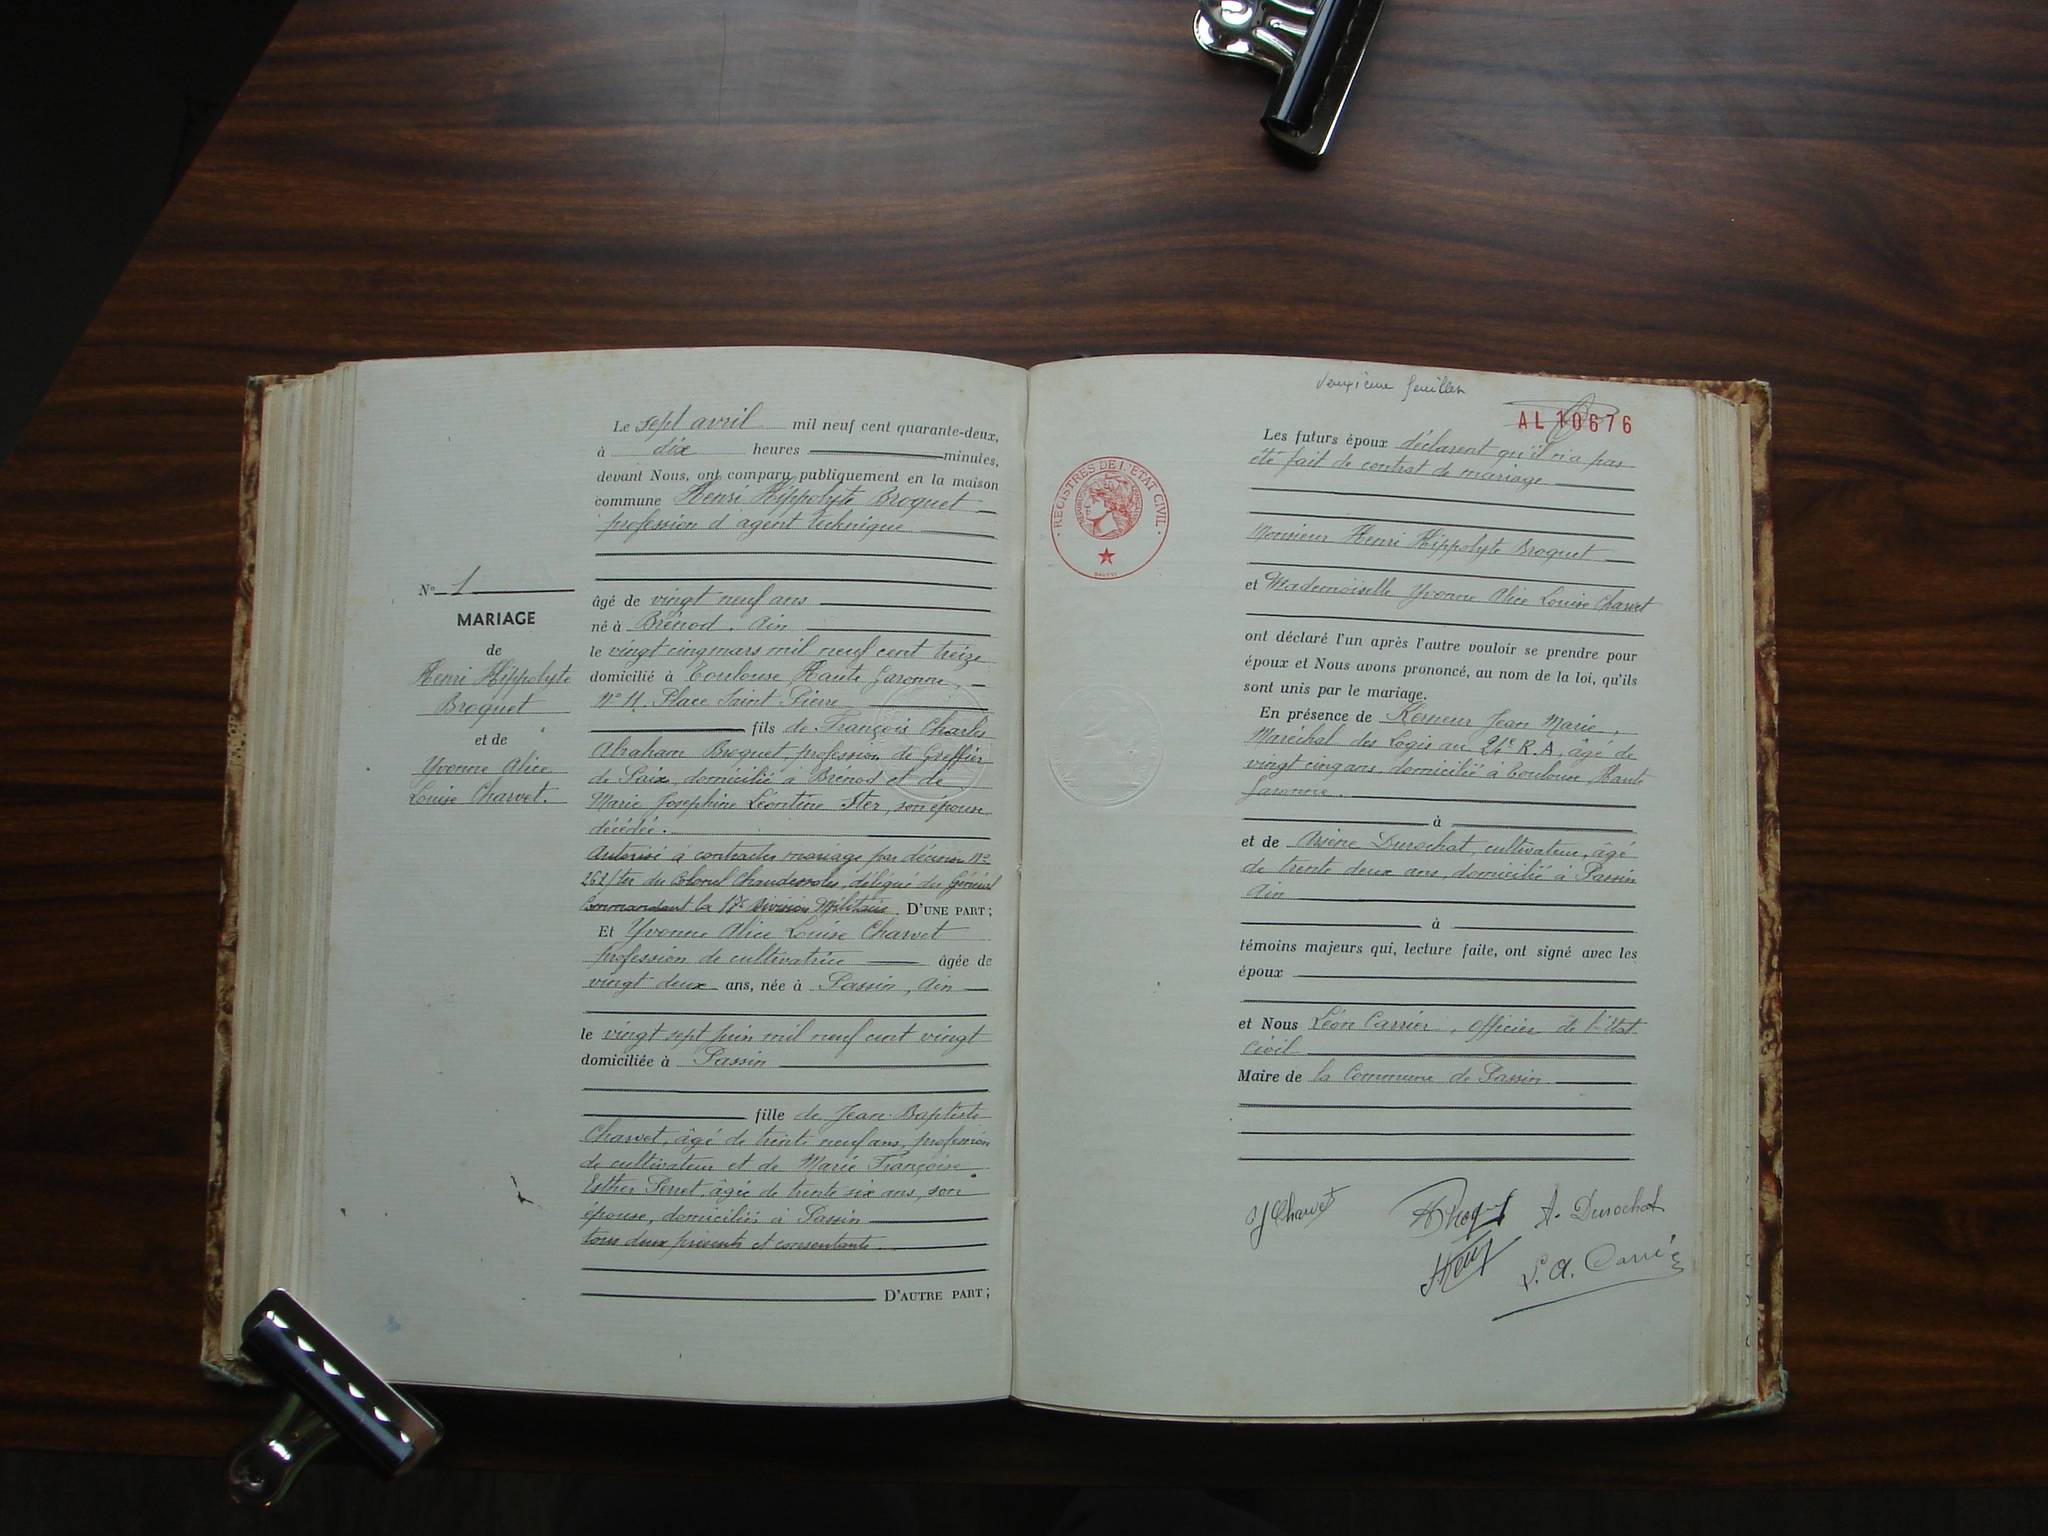 Le sept avril mil neuf cent quarante-deux,
à dix heures minutes,
devant Nous, ont comparu publiquement en la maison
commune Henri Hippolyte Broquet
profession d'agent technique
N° 1
MARIAGE
de
Henri Hippolyte
Broquet
et de
Yvonne Alice
Louise Charvet.
âgé de vingt neuf ans
né à Brénod. Ain
le vingt cinq mars mil neuf cent treize
domicilié à Toulouse, Haute Garonne,
N° 11. Place Saint Pierre
fils de François Charles
Abraham Broquet, profession de Greffier
de Paix, domicilié à Brénod et de
Marie Joséphine Léontine Ster, son épouse
décédée.
Autorisé à contracter mariage par décision N°
262/ter du Colonel délégué du Général
Commandant la 17e Division Militaire. D'UNE PART;
Et Yvonne Alice Louise Charvet
profession de cultivatrice âgée de
vingt deux ans, née à Passin, Ain
le vingt sept juin mil neuf cent vingt
domiciliée à Passin
fille de Jean-Baptiste
Charvet, âgé de trente neuf ans, profession
de cultivateur et de Marie Françoise
Esther Serret, âgée de trente six ans, son
épouse, domiciliés à Passin
tous deux présents et consentants.
D'AUTRE PART;
deuxième feuillet
AL 10676
REGISTRES DE L'ETAT CIVIL
Les futurs époux déclarent qu'il n'a pas
été fait de contrat de mariage
Monsieur Henri Hippolyte Broquet
et Mademoiselle Yvonne Alice Louise Charvet
ont déclaré l'un après l'autre vouloir se prendre pour
époux et Nous avons prononcé, au nom de la loi, qu'ils
sont unis par le mariage.
En présence de Jean Marie,
Maréchal des Logis au 24e R.A. âgé de
vingt cinq ans, domicilié à Toulouse, Haute
Garonne.
à
et de Arsène Durochat, cultivateur, âgé
de trente deux ans, domicilié à Passin
Ain
à
témoins majeurs qui, lecture faite, ont signé avec les
époux
et Nous Léon Carrier, officier de l'état
civil
Maire de la Commune de Passin
Y Charvet
A. Durochat
L. A. Carrier